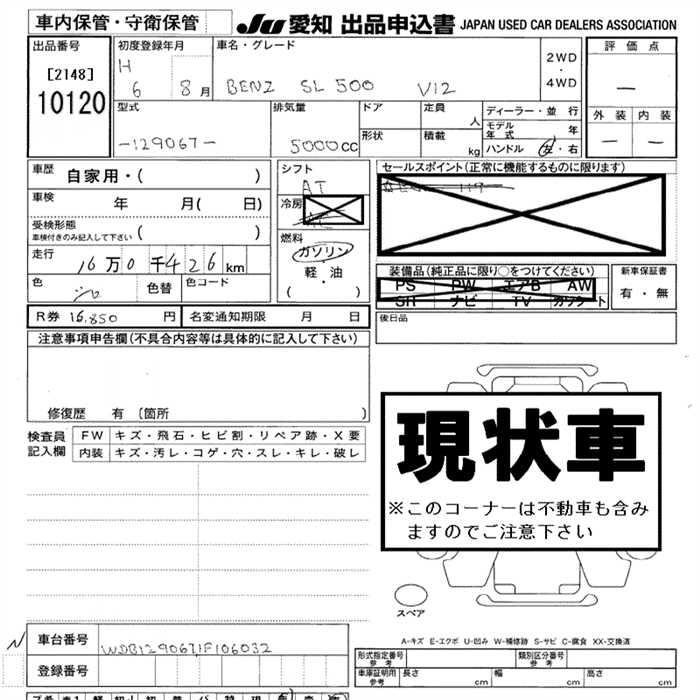 車内保管・守衛保管
JU 愛知 出品申込書 JAPAN USED CAR DEALERS ASSOCIATION
出品番号
[2148]
10120
初度登録年月
H 6 8月
車名・グレード
BENZ SL 500 V12
2WD
・
4WD
評価点
—
外装 内装
— —
型式
-129067-
排気量
5000cc
ドア
形状
定員 人
積載 kg
ディーラー・並行
モデル年式 年
ハンドル 左・右
車歴 自家用・( )
車検 年 月( 日)
受検形態
車検付きのみ記入して下さい ( )
走行 16万0千426km
色 色替 色コード
シフト
AT
冷房
AC
燃料
ガソリン
・
軽・油
( )
セールスポイント(正常に機能するものに限ります)
装備品(純正品に限り○をつけてください)
PS PW エアB AW
SR ナビ TV カワシート
新車保証書
有・無
後日品
R券 16,850 円
名変通知期限 月 日
注意事項申告欄(不具合内容等は具体的に記入して下さい)
修復歴 有 (箇所 )
検査員
記入欄
FW キズ・飛石・ヒビ割・リペア跡・X要
内装 キズ・汚レ・コゲ・穴・スレ・キレ・破レ
現状車
※このコーナーは不動車も含み
ますのでご注意下さい
スペア
A-キズ E-エクボ U-凹み W-補修跡 S-サビ C-腐食 XX-交換済
N
車台番号 WDB1290671F106032
登録番号
形式指定番号
参考
類別区分番号
参考
車庫証明用
参考
長さ cm 幅 cm 高さ cm